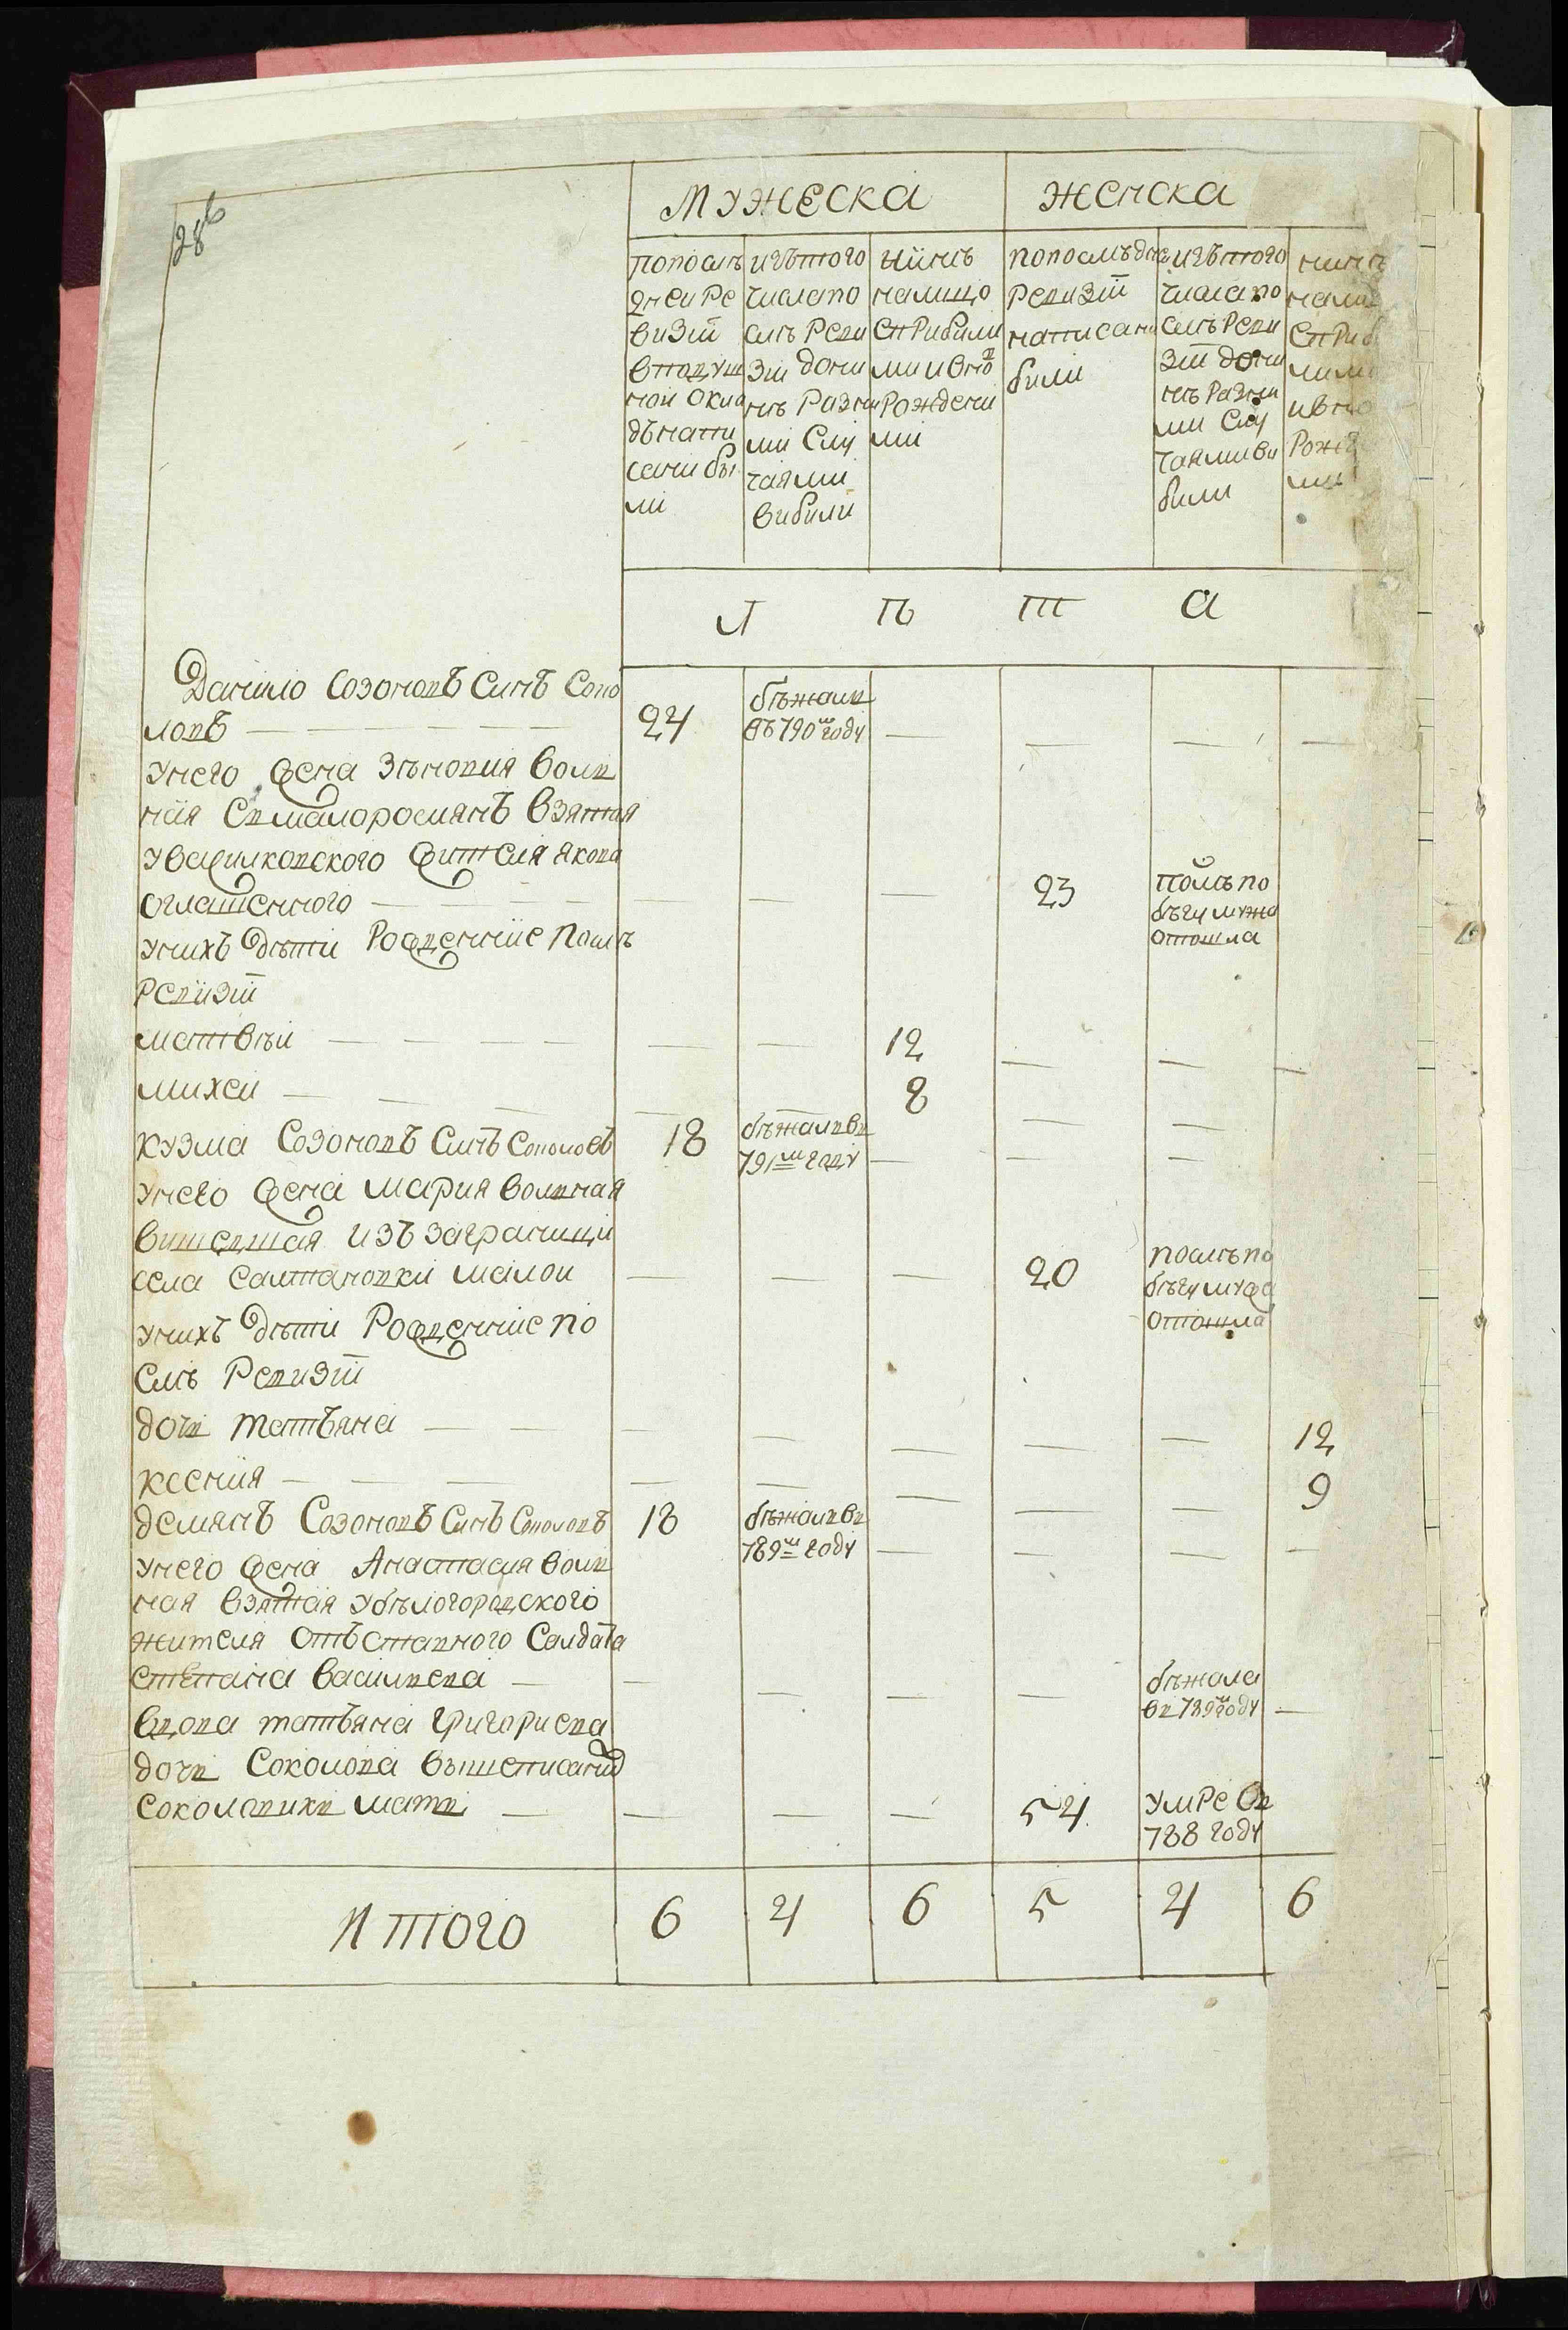 28б
МУЖЕСКА ЖЕНСКА
попослѣ
дней Ре
визїи
вподуш
ной окла
дѣ напи
сани бы
ли
изътого
числапо
слѣ Реви
зїи дони
нѣ Разни
ми Слу
чаями
вибили
нїинѣ
налицо
сприбили
ми и вно
Рождени
ми
попослѣдне
Ревизїи
написани
били
изътого
числа по
слѣ Реви
зїи дони
нѣ Разни
ми Слу
чаями ви
били
нинѣ
нали
сприб
лими
ивно
Рожд
ми
Л Ѣ Т А
Данило Созоновъ Синъ Соко
ловъ 24 бѣжалв въ 790м году
Унего Жена Зѣновия волн
ная Смалоросиянъ взятая
у васильковского жителя Якова
оглашенного 23 послѣ по бѣгу мужа отошла
унихъ дѣти Рожденние послѣ
Ревизїи
матвѣи 12
михеи 8
кузма Созоновъ Синъ Соколовъ 18 бѣжалвв 791м году
унего жена мария волная
вишедшая изъ заграници
села салтановки малои 20 послѣ по бѣгу мужа отошла
унихъ дѣти Рожденние по
слѣ Ревизїи
дочь татъяна 12
ксения 9
демянъ Созоновъ Синъ Соколовъ 18 бѣжалвв 789м году
унего жена Анастасия волн
ная взятая убѣлогородского
жителя отъставного Салдата
степана василвева бѣжала вв 789м году
вдова татъяна григориева
дочь Соколова вышеписанной
соколовихи мать 54 умре вв 788 году
Итого 6 4 6 5 4 6